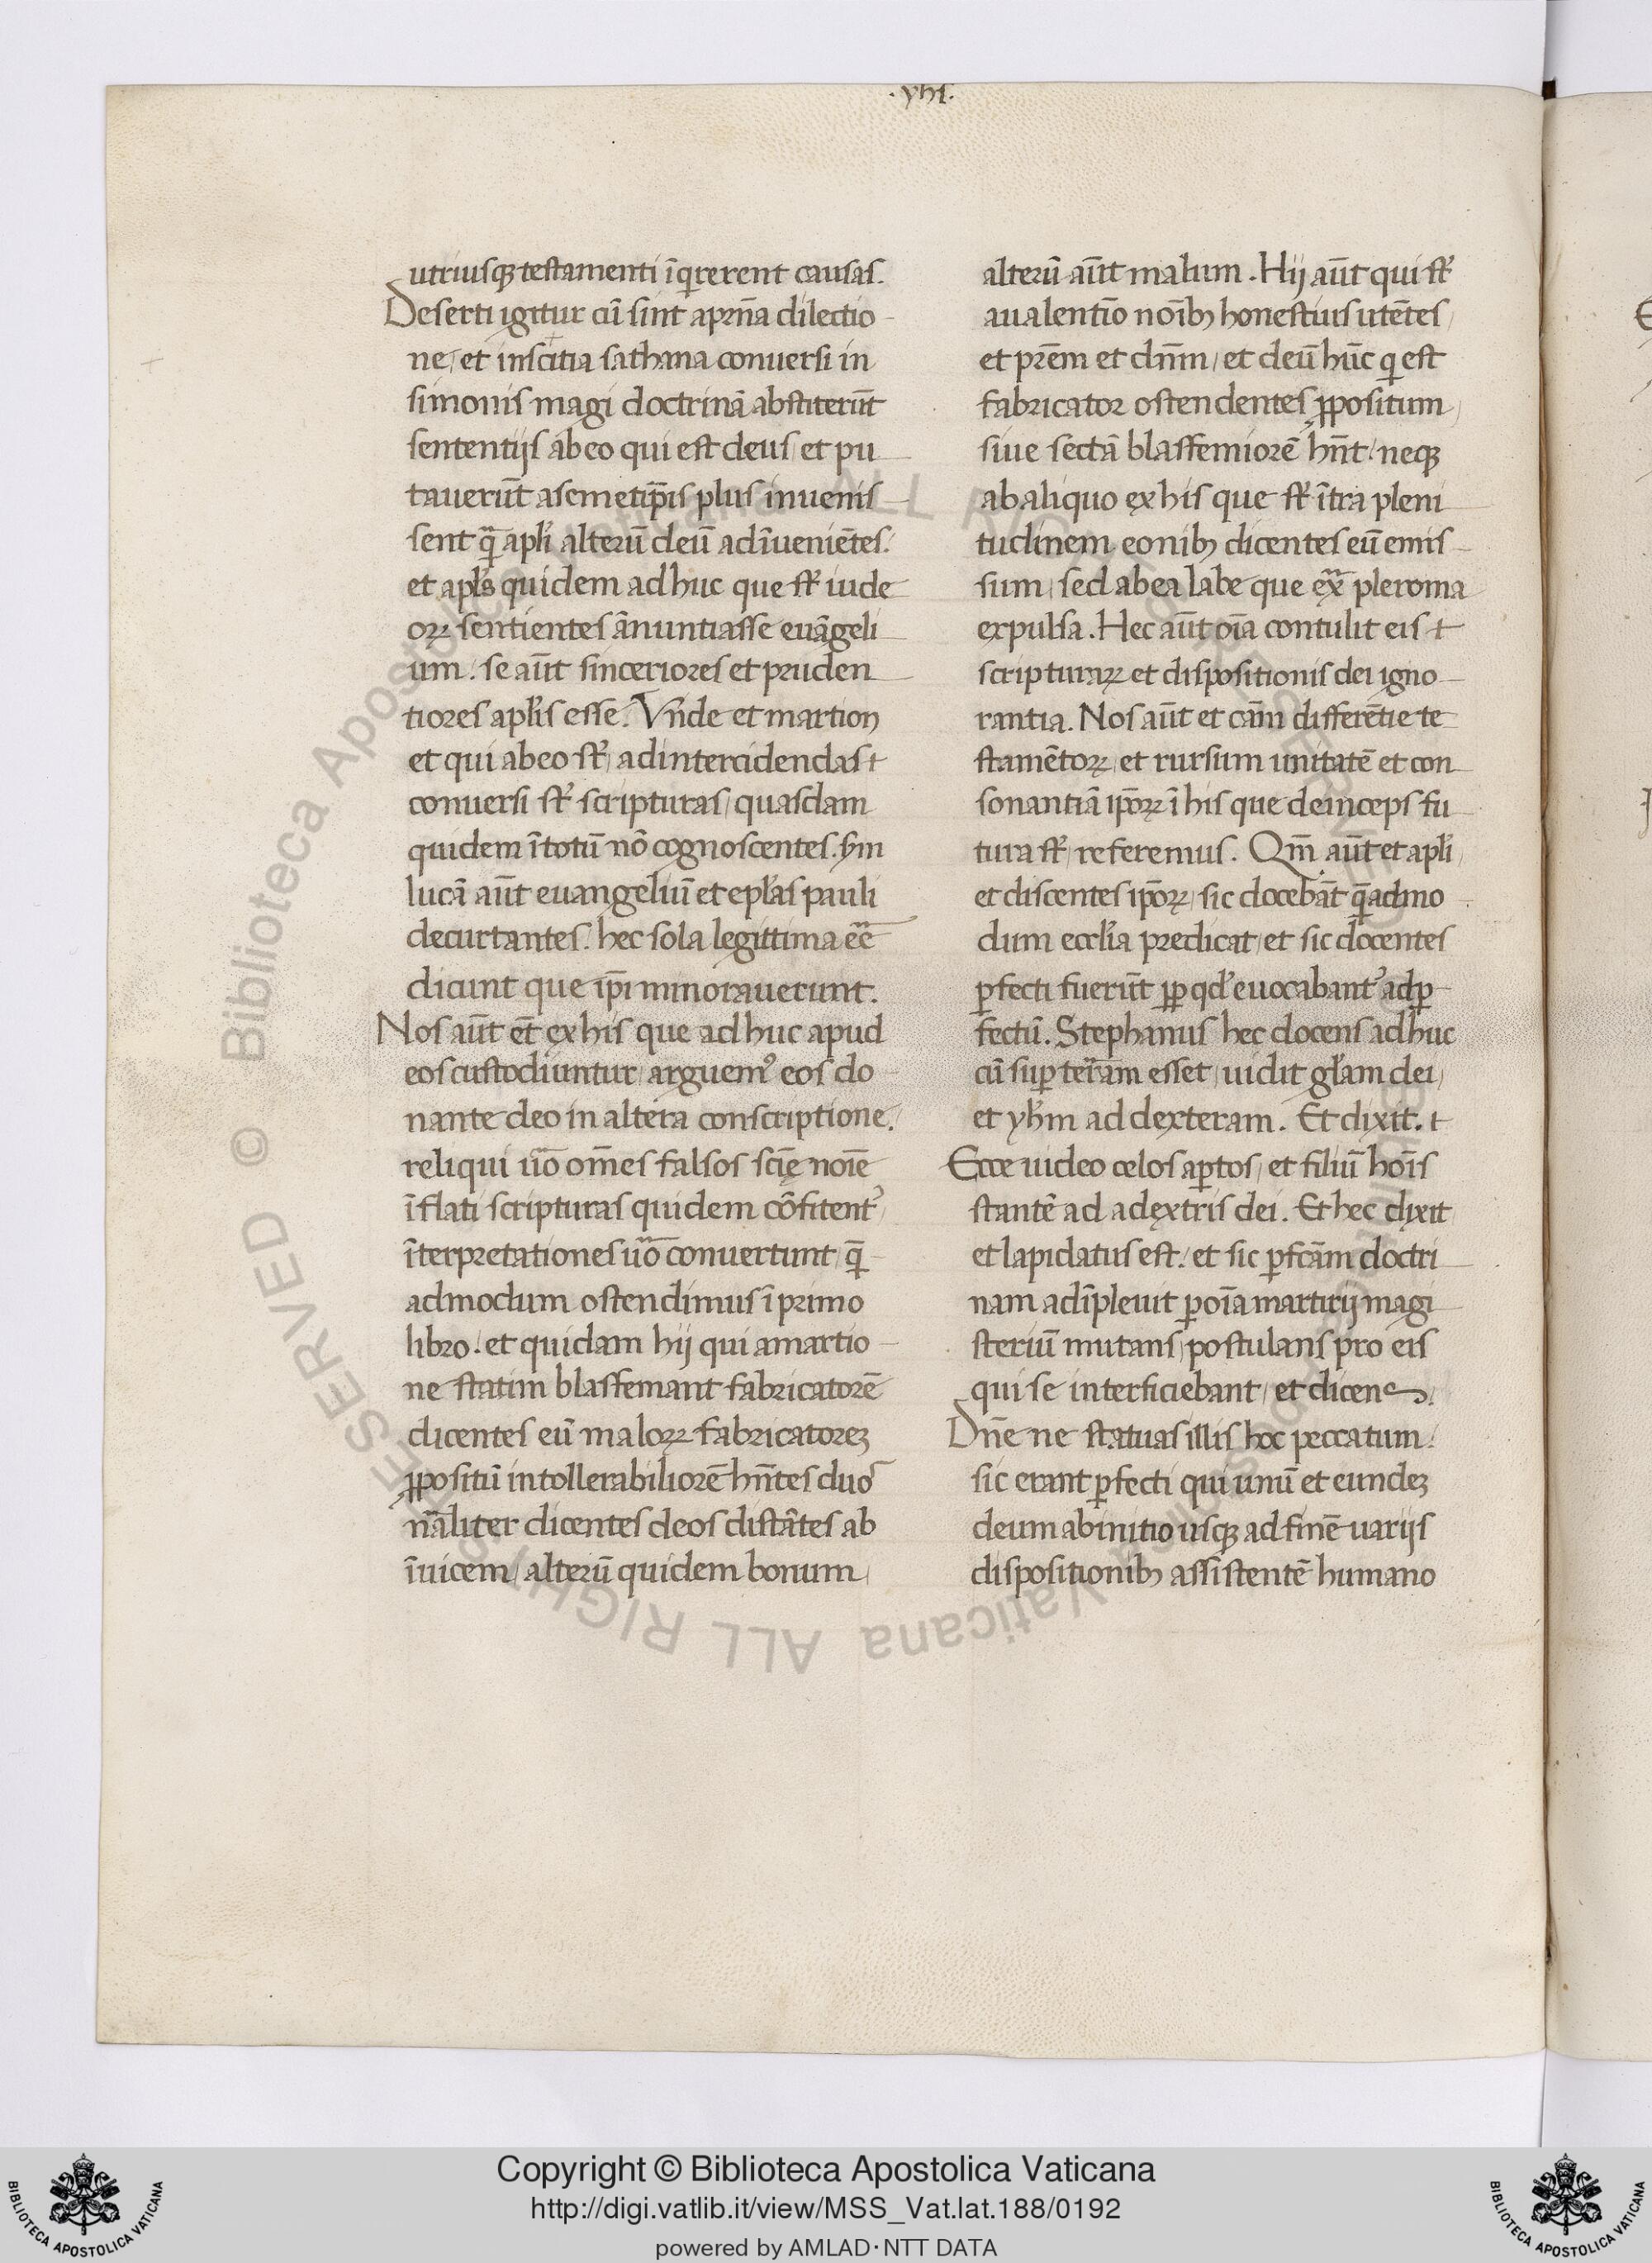 .yhs.
utriusqꝫ testamenti īqrerent causas.
Deserti igitur cū sint aprn̄a dilectio
ne, et inscitia sathana conuersi in
simonis magi doctrinā abstiterūt
sententijs abeo qui est deus, et pu
tauerūt asemetip̄is plus inuenis
sent qͣ̄ apl̄i alterū deū adīueniētes.
et apl̄s quidem adhuc que sr̄t iude
oꝝ sentientes ānuntiasse euāgeli
um. se aūt sinceriores et pruden
tiores apl̄is esse. Vn̄de et martion
et qui abeo sr̄t, adintercidendas
conuersi sr̄t scripturas, quasdam
quidem ītotū nō cognoscentes. ẜm
lucā aūt euangeliū et epl̄as pauli
decurtantes. hec sola legittima eē
dicunt que ip̄i minorauerunt.
Nos aūt et̄ ęx his que adhuc apud
eos custodiuntur, arguemꝰ eos do
nante deo in altera conscriptione.
reliqui uō om̄es falsos scīę noīe
īflati scripturas quidem cōfitentᷣ,
īterpretationes uō conuertunt, q̄
admodum ostendimus ī primo
libro. et quidam hij qui amartio
ne statim blasfemant fabricatorē
dicentes eū maloꝝ fabricatoreꝫ
ꝓpositū intollerabiliorē hn̄tes duo
nāliter dicentes deos distātes ab
īuicem, alterū quidem bonum,
alterū aūt malum. Hij aūt qui sr̄t
aualentīo noībꝫ honestius utētes,
et pr̄em et dn̄m, et deū hūc q est
fabricator ostendentes, ꝓpositum,
siue sectā blasfemiorē hn̄t. neqꝫ
ab aliquo ęx his que sr̄t ītra pleni
tudinem eonibꝫ dicentes eū emis
sum, sed abea labe que exͣ̄ pleroma
expulsa. Hec aūt oīa contulit eis
scripturaꝝ et dispositionis dei igno
rantia. Nos aūt et cām differētie te
stamētoꝝ, et rursum unitatē et con
sonantiā ip̄oꝝ ī his que deinceps fu
tura sr̄t, referemus. Qm̄ aūt et apl̄i,
et discentes ip̄oꝝ, sic docebāt q̄admo
dum eccl̄ia predicat, et sic docentes
ꝑfecti fuerūt ꝓp qd̓ euocabantᷣ adꝑ
fectū. Stephanus hec docens adhuc
cū suꝑ terram esset, uidit gl̄am dei,
et yhm̄ ad dexteram. Et dixit.
Ecce uideo celos aꝑtos, et filiū hoīs
stantē ad adęxtris dei. Et hec dixit
et lapidatus est. et sic ꝑfcām doctri
nam adīpleuit ꝑ oīa martirij magi
steriū mutans, postulans pro eis
qui se interficiebant, et dicens.
Dn̄e ne statuas illis hoc peccatum.
sic erant ꝑfecti qui unū et eundeꝫ
deum abinitio usqꝫ ad finē uarijs
dispositionibꝫ assistentē humano
© Biblioteca Apostolica Vaticana ALL RIGHTS RESERVED
Copyright © Biblioteca Apostolica Vaticana
http://digi.vatlib.it/view/MSS_Vat.lat.188/0192
powered by AMLAD·NTT DATA
BIBLIOTECA APOSTOLICA VATICANA
BIBLIOTECA APOSTOLICA VATICANA